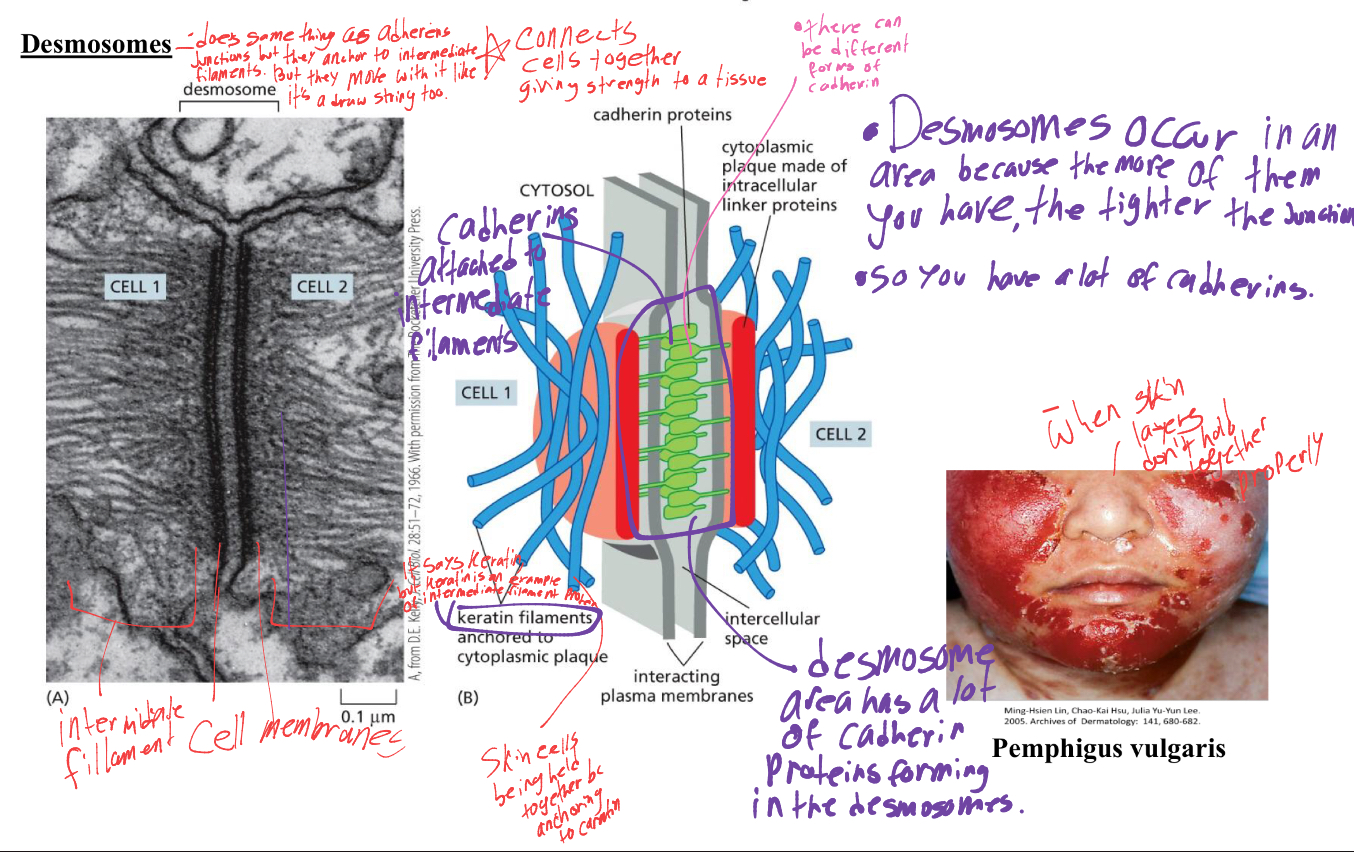 Desmosomes
- does same thing as adherens
Junctions but they anchor to intermediate
filaments. But they move with it like
it's a draw string too.
Connects
cells together
giving strength to a tissue
• there can
be different
forms of
cadherin
desmosome
CELL 1
CELL 2
(A)
0.1 μm
A, from D.E. Kelly, J. Cell Biol. 28:51–72, 1966. With permission from The Rockefeller University Press.
intermidate
fillament
Cell membranes
cadherin proteins
cytoplasmic
plaque made of
intracellular
linker proteins
CYTOSOL
Cadherins
attached to
intermediate
filaments
CELL 1
CELL 2
says keratin
but keratin is an example
of intermediate filament protein
keratin filaments
anchored to
cytoplasmic plaque
(B)
intercellular
space
interacting
plasma membranes
Skin cells
being held
together bc
anchoring
to caratin
desmosome
area has a lot
of cadherin
Proteins forming
in the desmosomes.
• Desmosomes occur in an
area because the more of them
you have, the tighter the Junction
• So you have a lot of cadherins.
- When skin
layers
don't hold
together
properly
Ming-Hsien Lin, Chao-Kai Hsu, Julia Yu-Yun Lee.
2005. Archives of Dermatology: 141, 680-682.
Pemphigus vulgaris